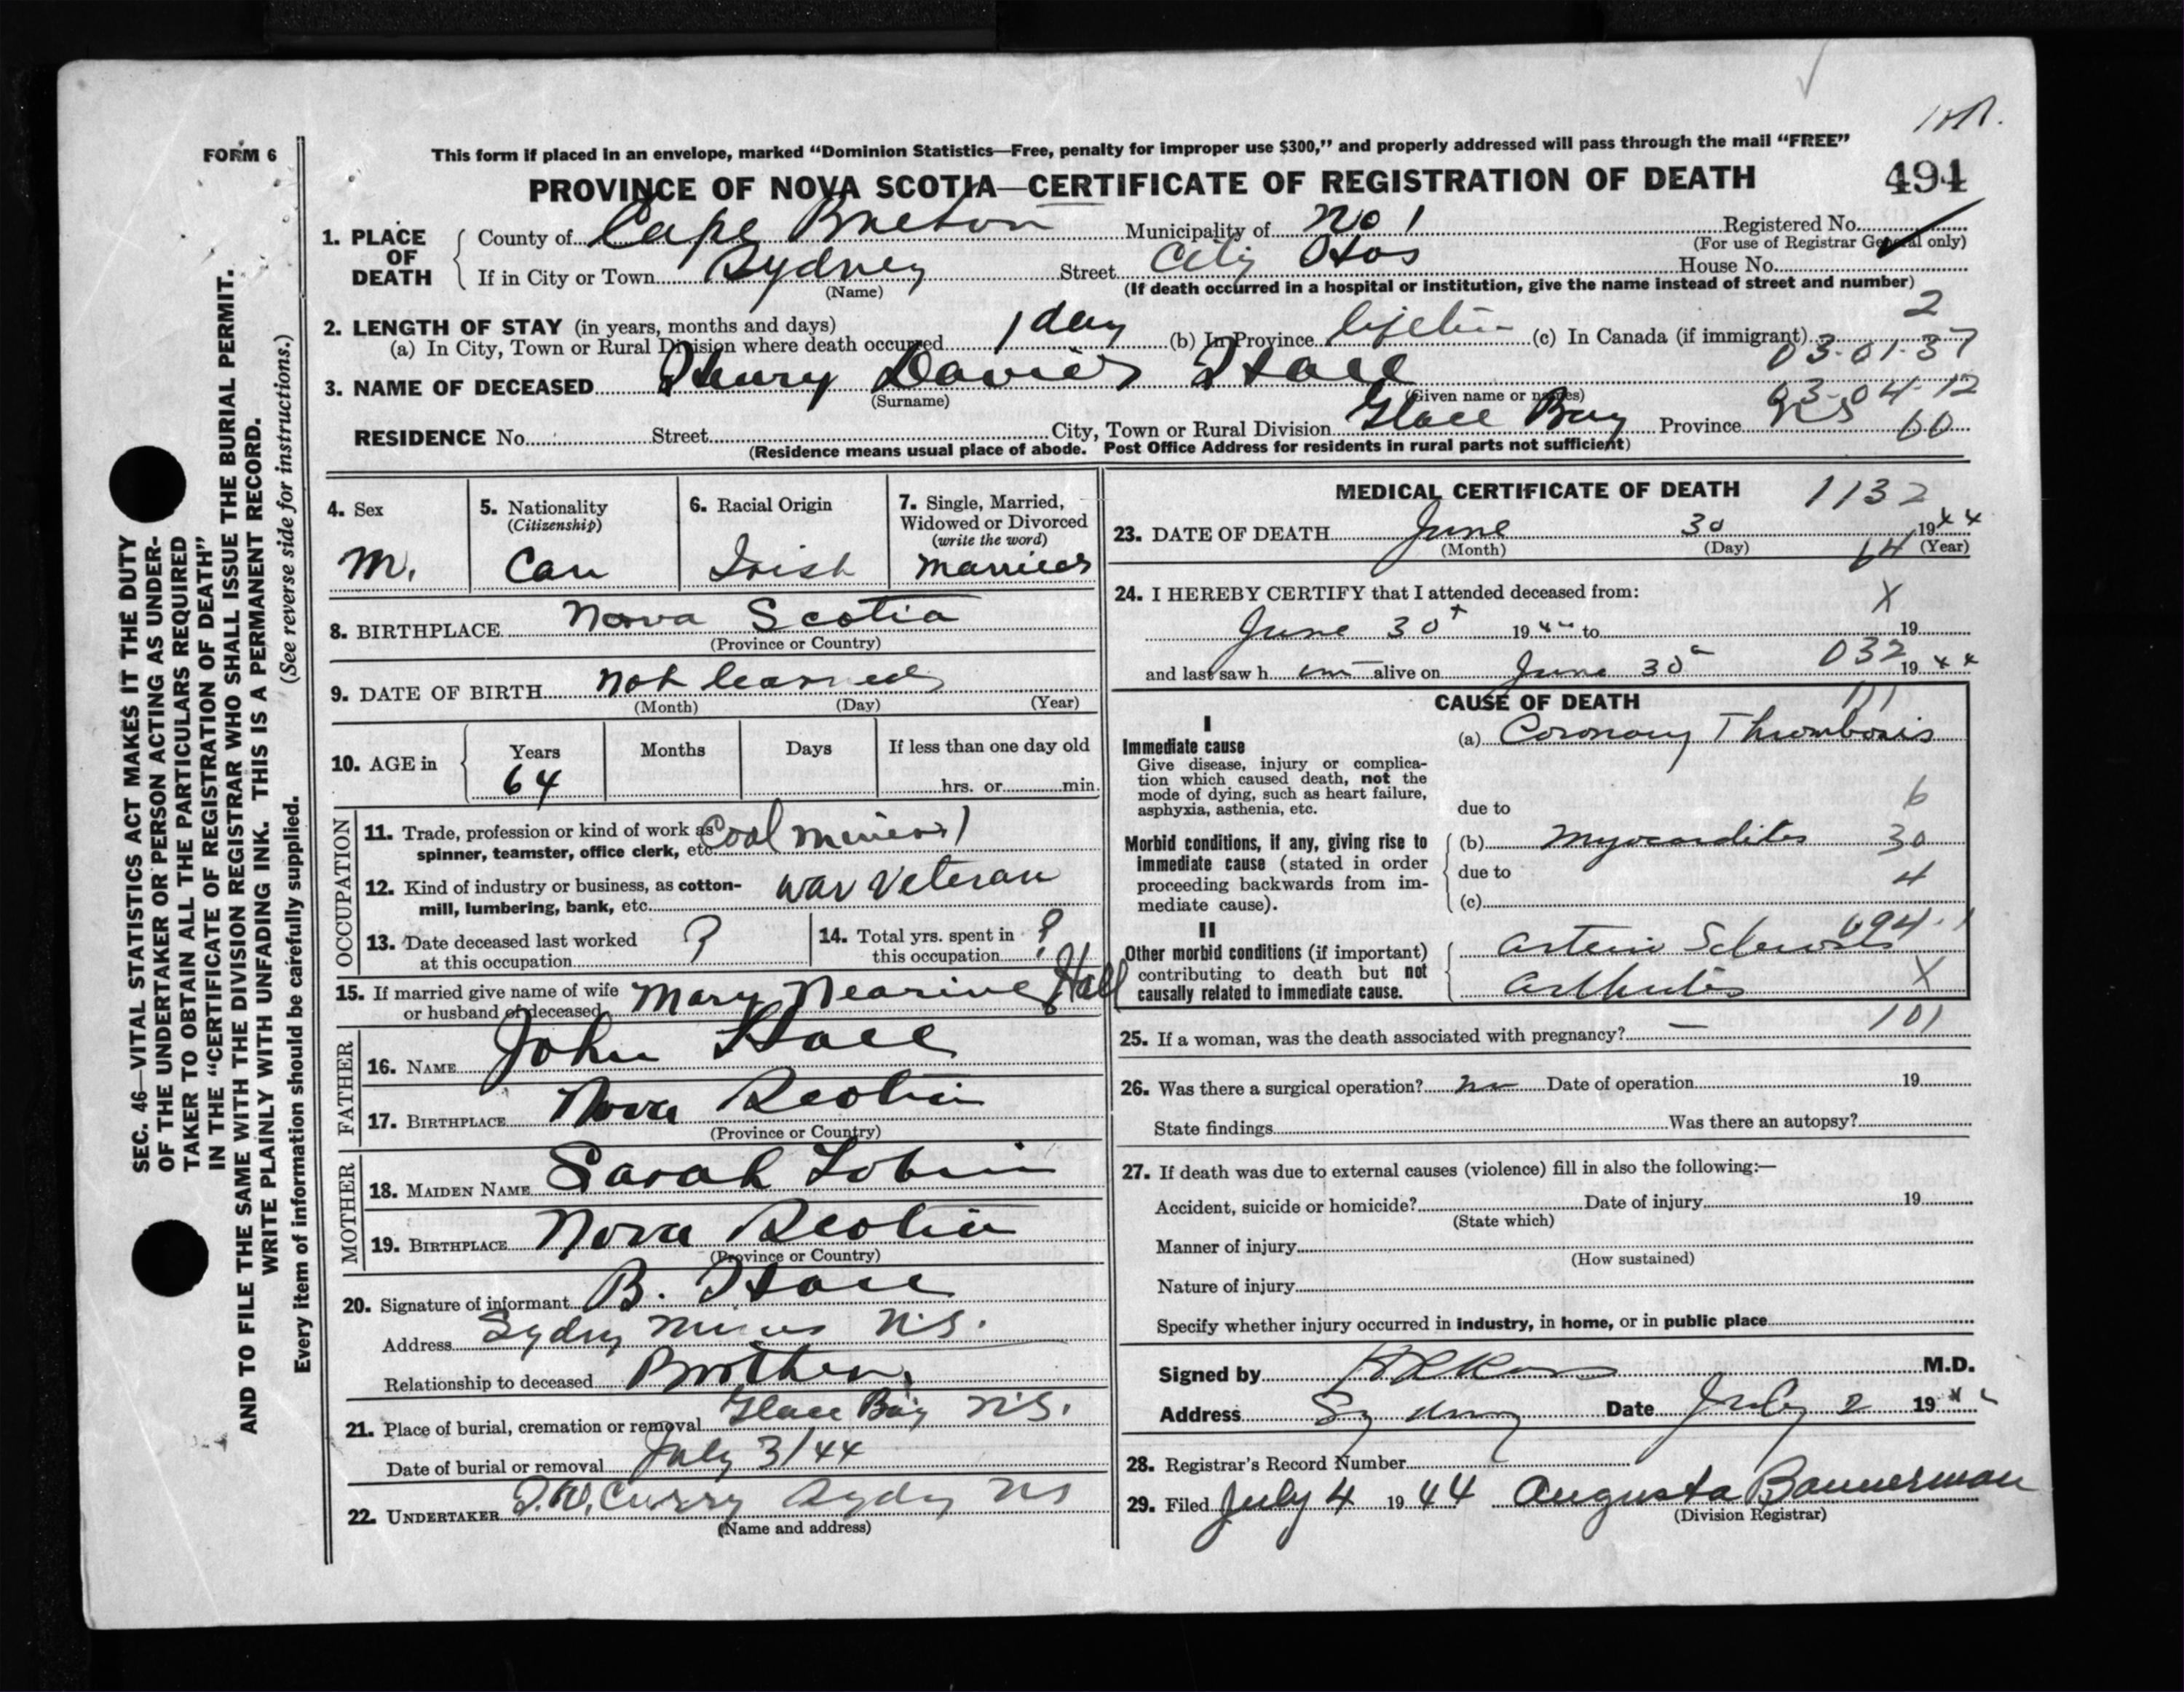 FORM 6
This form if placed in an envelope, marked "Dominion Statistics—Free, penalty for improper use $300," and properly addressed will pass through the mail "FREE"
494
PROVINCE OF NOVA SCOTIA—CERTIFICATE OF REGISTRATION OF DEATH
1. PLACE OF DEATH
County of Cape Breton Municipality of No 1 Registered No.
(For use of Registrar General only)
If in City or Town Sydney Street City Hos House No.
(Name) (If death occurred in a hospital or institution, give the name instead of street and number)
2
2. LENGTH OF STAY (in years, months and days)
(a) In City, Town or Rural Division where death occurred 1 day (b) In Province lifetime (c) In Canada (if immigrant)
03-01-37
3. NAME OF DECEASED Henry Davies Hall
(Surname) (Given name or names)
03-04-12
RESIDENCE No. Street City, Town or Rural Division Glace Bay Province NS
60
(Residence means usual place of abode. Post Office Address for residents in rural parts not sufficient)
4. Sex
M.
5. Nationality
(Citizenship)
Can
6. Racial Origin
Irish
7. Single, Married,
Widowed or Divorced
(write the word)
Married
8. BIRTHPLACE Nova Scotia
(Province or Country)
9. DATE OF BIRTH not learned
(Month) (Day) (Year)
10. AGE in
Years Months Days If less than one day old
64 hrs. or min.
OCCUPATION
11. Trade, profession or kind of work as
spinner, teamster, office clerk, etc. Coal miner
12. Kind of industry or business, as cotton-
mill, lumbering, bank, etc. War Veteran
13. Date deceased last worked
at this occupation ?
14. Total yrs. spent in
this occupation ?
15. If married give name of wife
or husband of deceased Mary Nearing Hall
FATHER
16. NAME John Hall
17. BIRTHPLACE Nova Scotia
(Province or Country)
MOTHER
18. MAIDEN NAME Sarah Tobin
19. BIRTHPLACE Nova Scotia
(Province or Country)
20. Signature of informant B. Hall
Address Sydney Mines N.S.
Relationship to deceased Brother
21. Place of burial, cremation or removal Glace Bay N.S.
Date of burial or removal July 3/44
22. UNDERTAKER T.W. Curry Sydney NS
(Name and address)
MEDICAL CERTIFICATE OF DEATH
1132
23. DATE OF DEATH June 30 1944
(Month) (Day) (Year)
64
24. I HEREBY CERTIFY that I attended deceased from:
X
June 30 1944 to 19
032
and last saw him alive on June 30 1944
CAUSE OF DEATH
I
Immediate cause
Give disease, injury or complica-
tion which caused death, not the
mode of dying, such as heart failure,
asphyxia, asthenia, etc.
(a) Coronary Thrombosis
due to
6
Morbid conditions, if any, giving rise to
immediate cause (stated in order
proceeding backwards from im-
mediate cause).
(b) Myocarditis
30
due to
4
(c)
094.1
II
Other morbid conditions (if important)
contributing to death but not
causally related to immediate cause.
Arterio Sclerosis
Arthritis
X
101
25. If a woman, was the death associated with pregnancy? —
26. Was there a surgical operation? no Date of operation 19
State findings Was there an autopsy?
27. If death was due to external causes (violence) fill in also the following:—
Accident, suicide or homicide? Date of injury 19
(State which)
Manner of injury
(How sustained)
Nature of injury
Specify whether injury occurred in industry, in home, or in public place
Signed by M.D.
Address Sydney Date July 2 1944
28. Registrar's Record Number
29. Filed July 4 1944 Augusta Bannerman
(Division Registrar)
SEC. 46—VITAL STATISTICS ACT MAKES IT THE DUTY
OF THE UNDERTAKER OR PERSON ACTING AS UNDER-
TAKER TO OBTAIN ALL THE PARTICULARS REQUIRED
IN THE "CERTIFICATE OF REGISTRATION OF DEATH"
AND TO FILE THE SAME WITH THE DIVISION REGISTRAR WHO SHALL ISSUE THE BURIAL PERMIT.
WRITE PLAINLY WITH UNFADING INK. THIS IS A PERMANENT RECORD.
Every item of information should be carefully supplied. (See reverse side for instructions.)